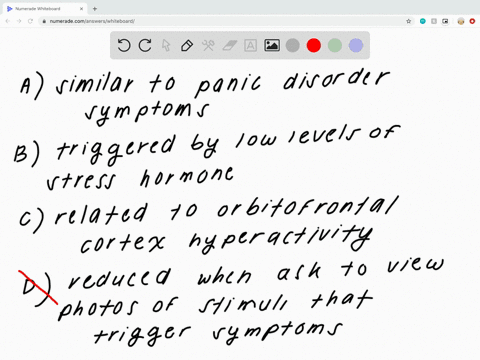 Numerade Whiteboard
numerade.com/answers/whiteboard/
A) similar to panic disorder
symptoms
B) triggered by low levels of
stress hormone
C) related to orbitofrontal
cortex hyperactivity
D) reduced when ask to view
photos of stimuli that
trigger symptoms